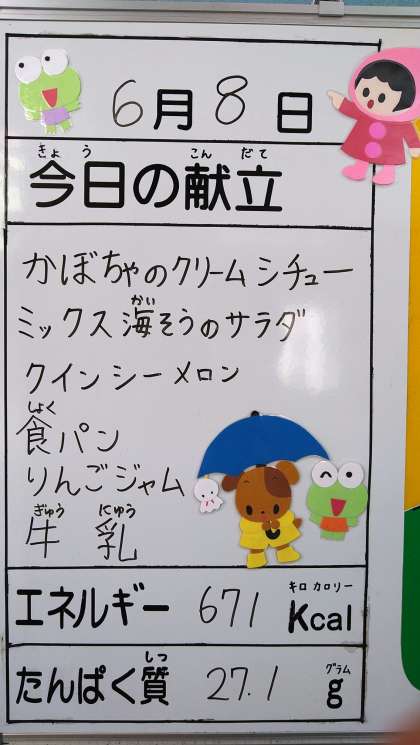 6月8日
きょう こんだて
今日の献立
かぼちゃのクリームシチュー
かい
ミックス海そうのサラダ
クインシーメロン
しょく
食パン
りんごジャム
ぎゅう にゅう
牛 乳
キロ カロリー
エネルギー 671 Kcal
しつ グラム
たんぱく質 27.1 g